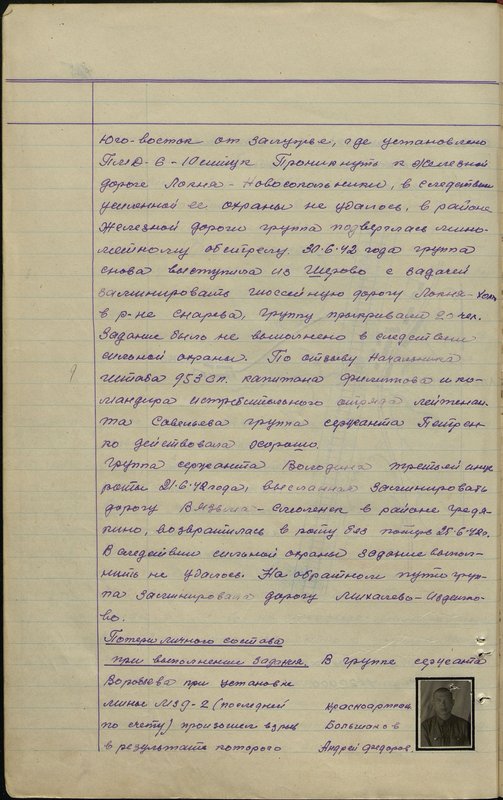 Юго-восток от Залужье, где установлено
ПМД-6 - 10 штук Проникнуть к железной
дороге Локня - Новосокольники, в следствии
усиленной ее охраны не удалось, в районе
железной дороги группа подверглась мино-
метному обстрелу. 30.6.42 года группа
снова выступила из с задачей
заминировать шоссейную дорогу Локня - Холм
в р-не группу прикрывает 20 чел.
Задание было не выполнено в следствии
сильной охраны. По отзыву начальника
штаба 953 сп. капитана Филиппова и ко-
мандира истребительного отряда лейтенан-
та Савельева группа сержанта Петрен-
ко действовала хорошо.
Группа сержанта Володина третьей
роты 21.6.42 года, высланная заминировать
дорогу Вязьма - Смоленск в районе Гредя-
кино, возвратилась в роту без потерь 25.6.42г.
В следствии сильной охраны задание выпол-
нить не удалось. На обратном пути груп-
па заминировала дорогу Михалево - Издешко-
во.
Потери личного состава
при выполнении задания. В группе сержанта
Воробьева при установке
мины МЗД-2 (последней красноармеец
по счету) произошел взрыв Большаков
в результате которого Андрей Федоров.
9